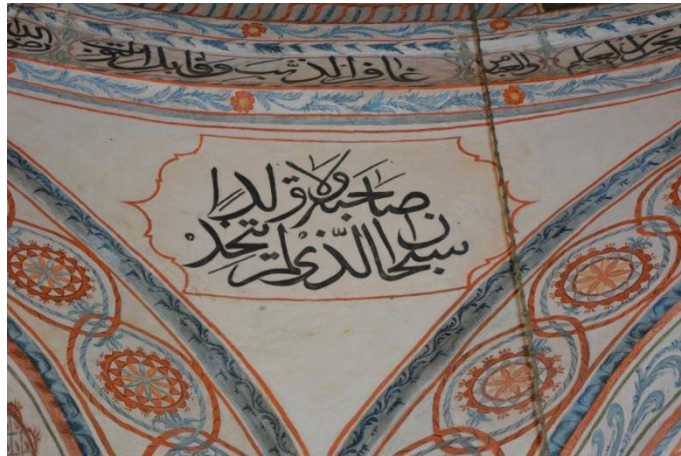 غافر الذنب وقابل التوب
سبحان الذي لم يتخذ
صاحبة ولا ولدا